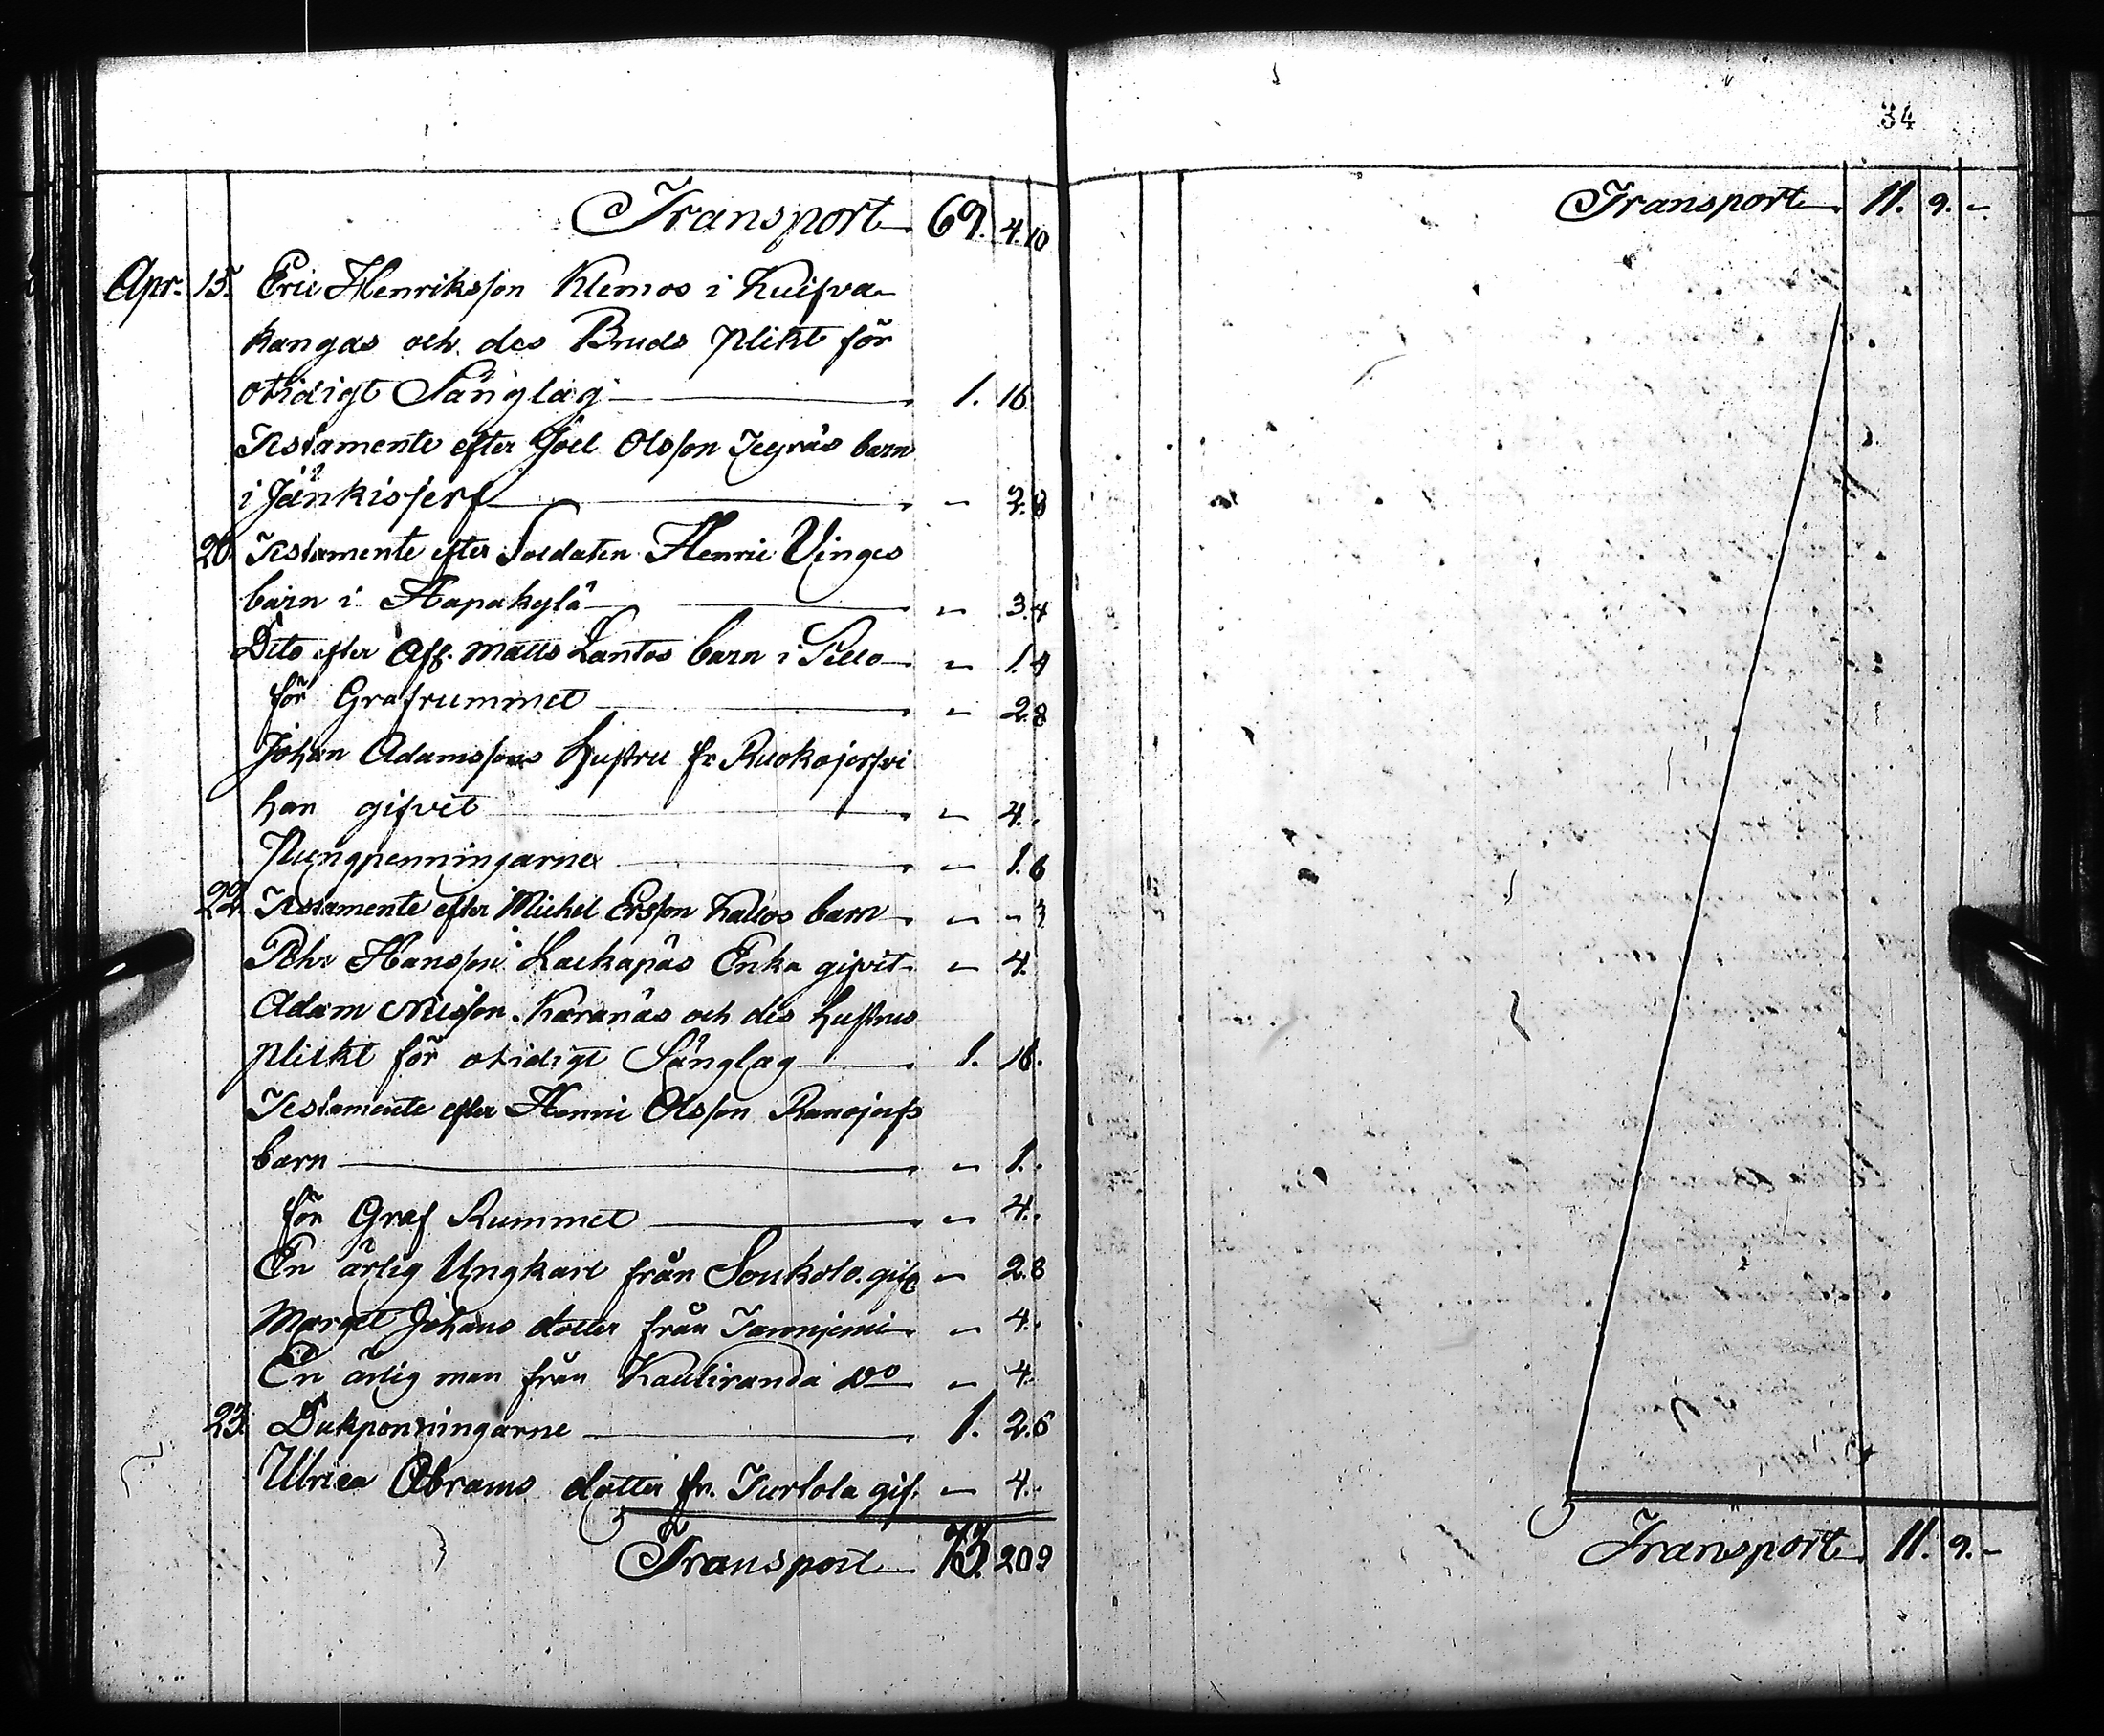 Transport 69. 4. 10
Apr. 15. Eric Henriksson Klemos i Kuifva-
kangas och des Bruds plikt för
otidigt Sänglag 1. 16
Testamente efter Joel Olsson barn
i Jänkisjerf " 2. 8
20. Testamente efter Soldaten Henric Vinges
barn i Hapakylä " 3. 4
Dito efter Afl. Matts Lantos barn i Pello " 1. 4
för Grafrummet " 2. 8
Johan Adamssons hustru fr Ruokojerfvi
han gifvit " 4. "
Pungpenningarne " 1. 6
22. Testamente efter Michel Ersson Kallos barn " " 3
Pehr Hansson Laukapäs Enka gifvit " 4.
Adam Nilsson Karanäs och des hustrus
plickt för otidigt Sänglag 1. 16.
Testamente efter Henric Olsson Ranojerfs
barn " 1. "
för Graf Rummet " 4. "
En ärlig Ungkarl från Soukolo. gif. " 2. 8
Marget Johans dotter från " 4. "
En ärlig man från Kauliranda do " 4.
23. Dukpenningarne 1. 2. 6
Ulrica Abrams dotter fr. Turtola gif. " 4. "
Transport 73. 20 2
34
Transport 11. 9. -
Transport 11. 9. -